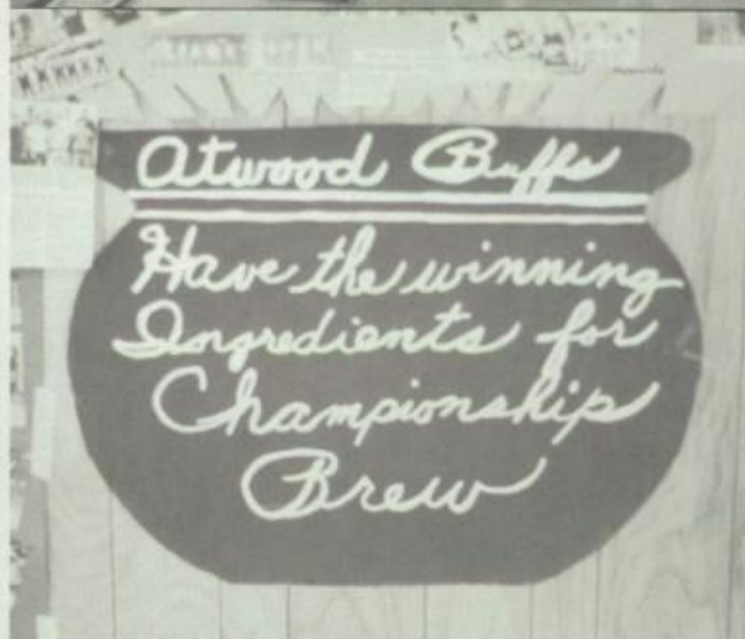 Atwood Buffs
Have the winning
Ingredients for
Championship
Brew